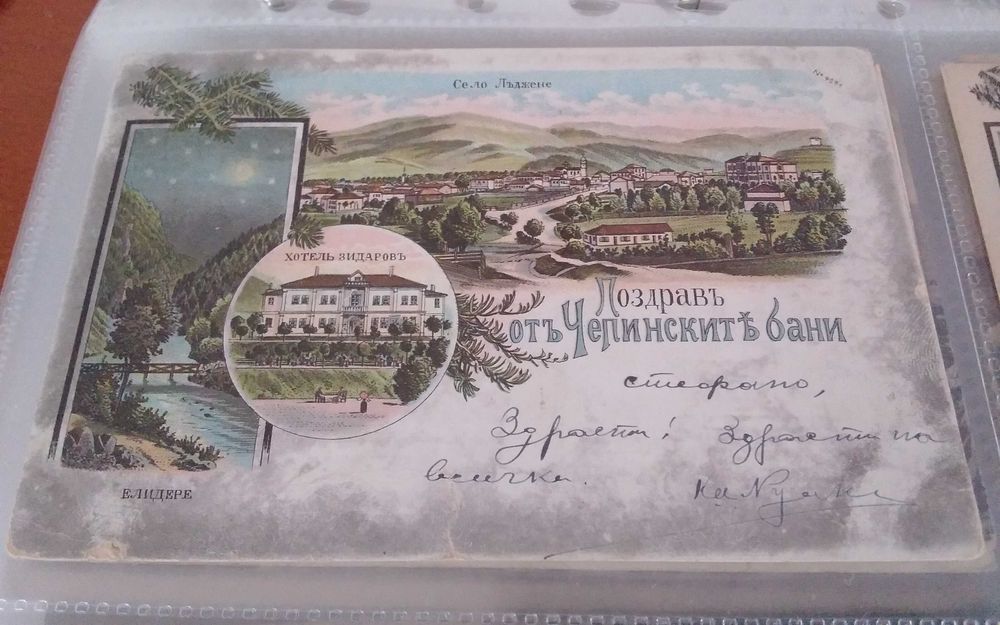 Село Лъджене
ХОТЕЛЬ ЗИДАРОВЪ
Поздравъ
отъ Чепинскитѣ бани
Стефано,
Здрасти! Здрасти на
всичка.
ЕЛИДЕРЕ